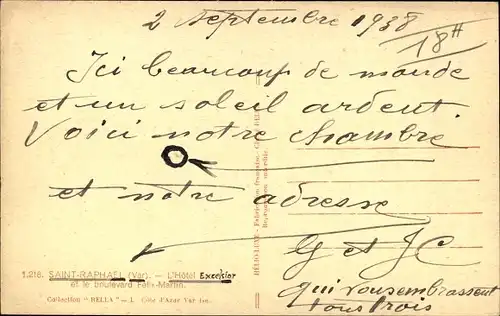 2 Septembre 1938
18H
Ici beaucoup de monde
et un soleil ardent.
Voici notre chambre
et notre adresse
G et JC
qui vous embrassent
tous trois
1.216. SAINT-RAPHAEL (Var). — L'Hôtel Excelsior
et le boulevard Félix-Martin.
Collection "BELLA" — 1. Côte d'Azur Var
HÉLIO-LUXE - Fabrication française
Reproduction interdite.